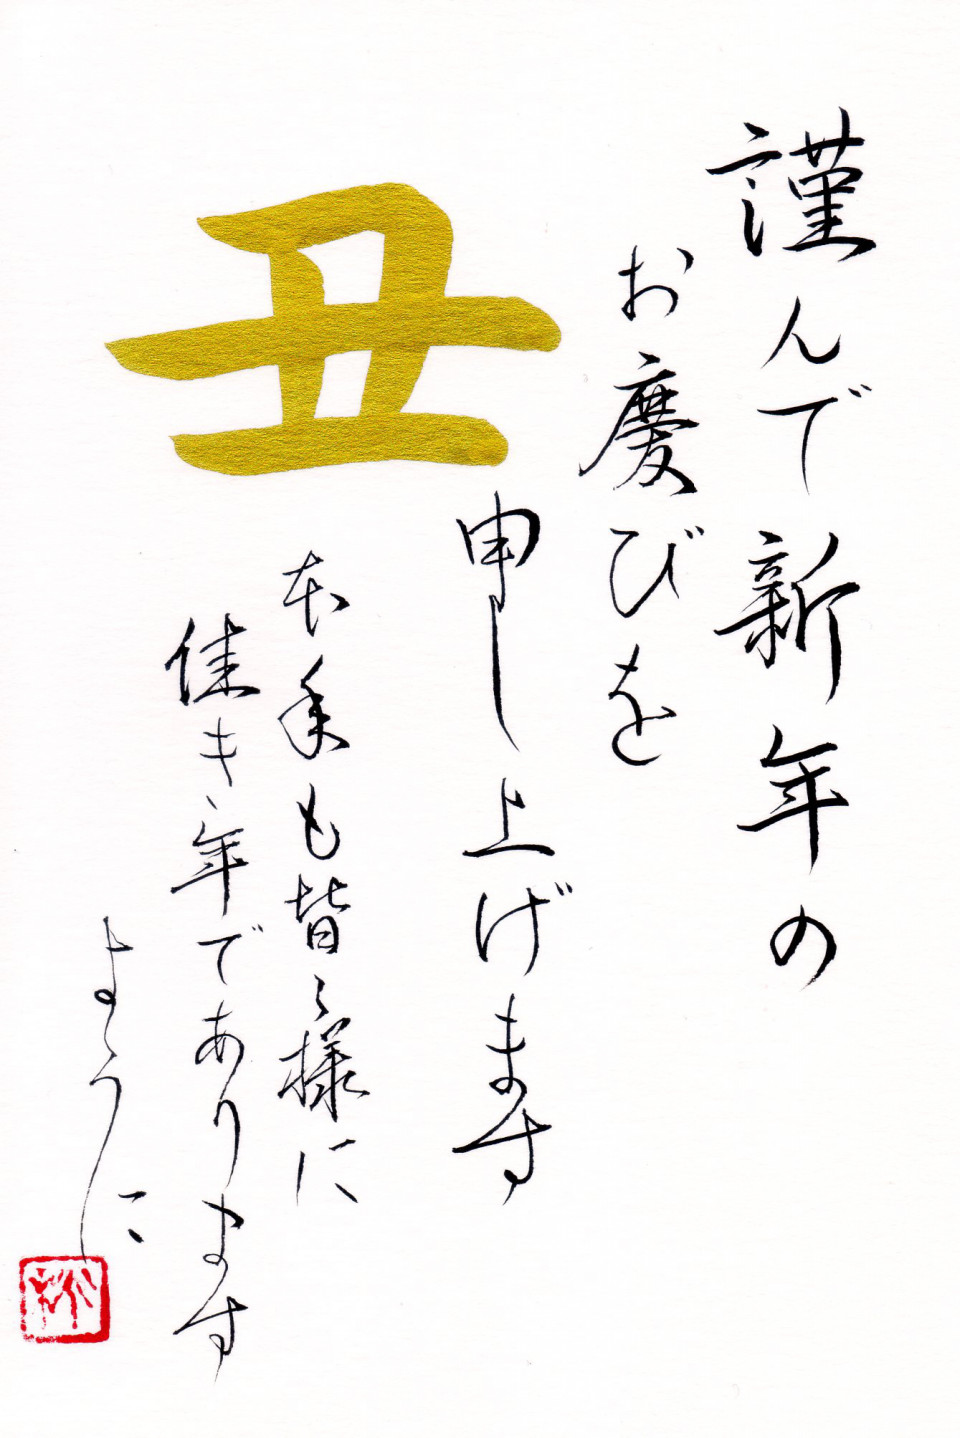 謹んで新年の
お慶びを
申し上げます
丑
本年も皆々様に
佳き年であります
ように